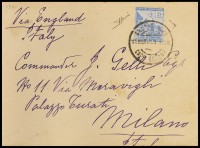 Via England
Italy
Commander J. Gelli Esq
No 11 Via Meravigli
Palazzo Turati
Milano